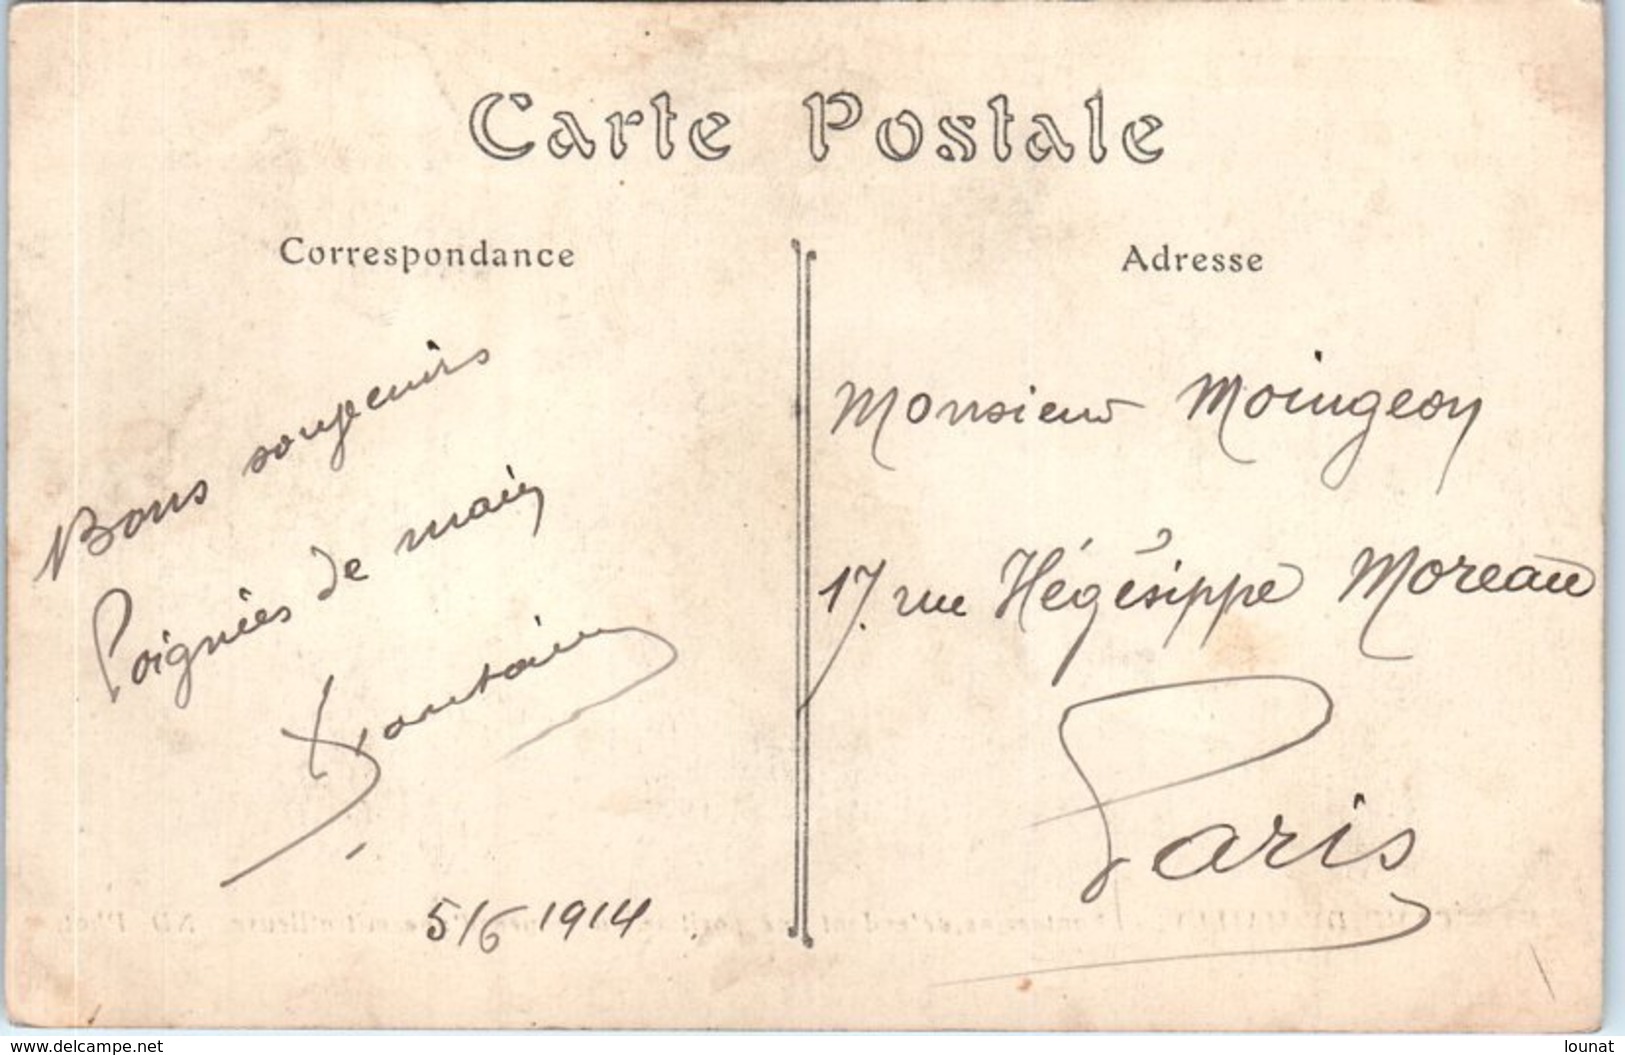 Carte Postale
Correspondance
Adresse
Bons souvenirs
Poignées de main
5/6 1914
Monsieur Moingeon
17 rue Hégésippe Moreau
Paris
www.delcampe.net
lounat